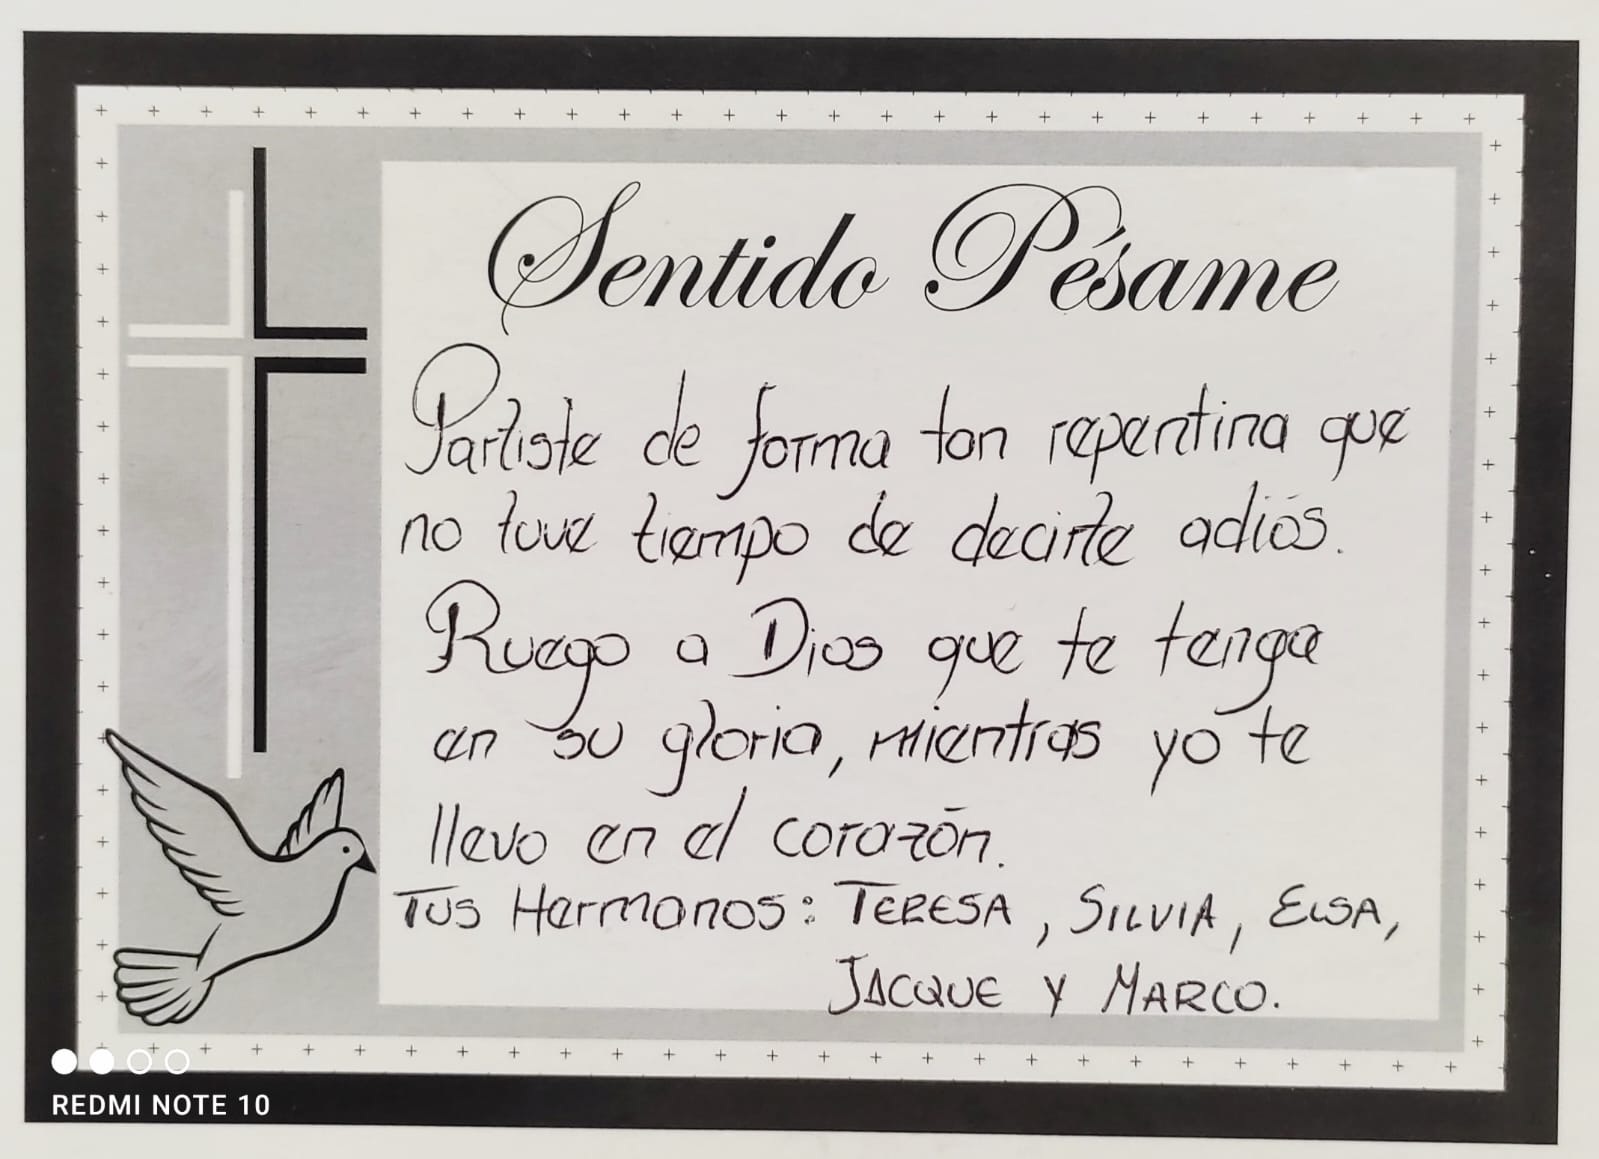 Sentido Pésame
Partiste de forma tan repentina que
no tuve tiempo de decirte adiós.
Ruego a Dios que te tenga
en su gloria, mientras yo te
llevo en el corazón.
Tus Hermanos: TERESA, SILVIA, ELSA,
JACQUE Y MARCO.
REDMI NOTE 10